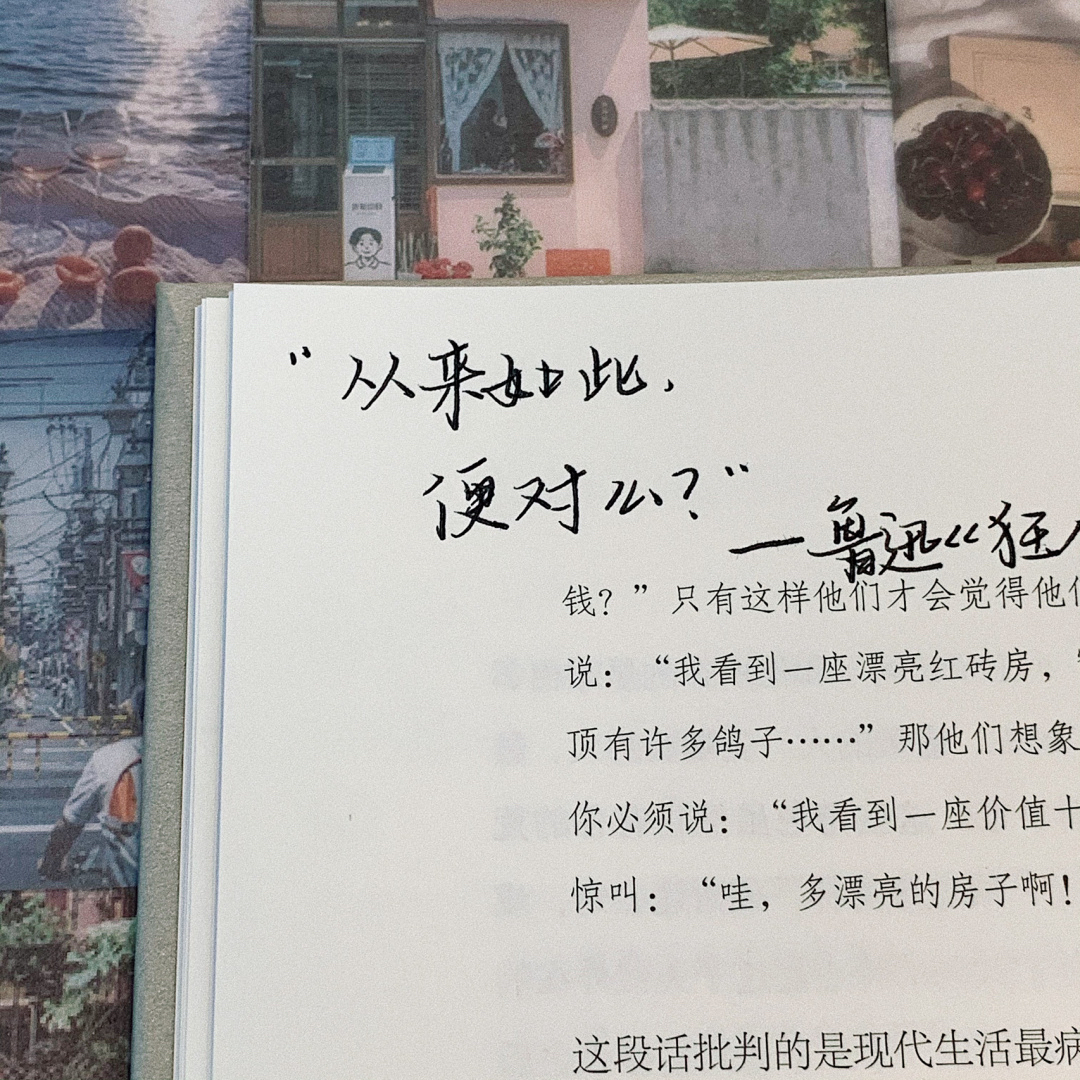 “从来如此，
便对么？”
—鲁迅《狂人
钱？”只有这样他们才会觉得他们
说：“我看到一座漂亮红砖房，
顶有许多鸽子……”那他们想象
你必须说：“我看到一座价值十
惊叫：“哇，多漂亮的房子啊！
这段话批判的是现代生活最病